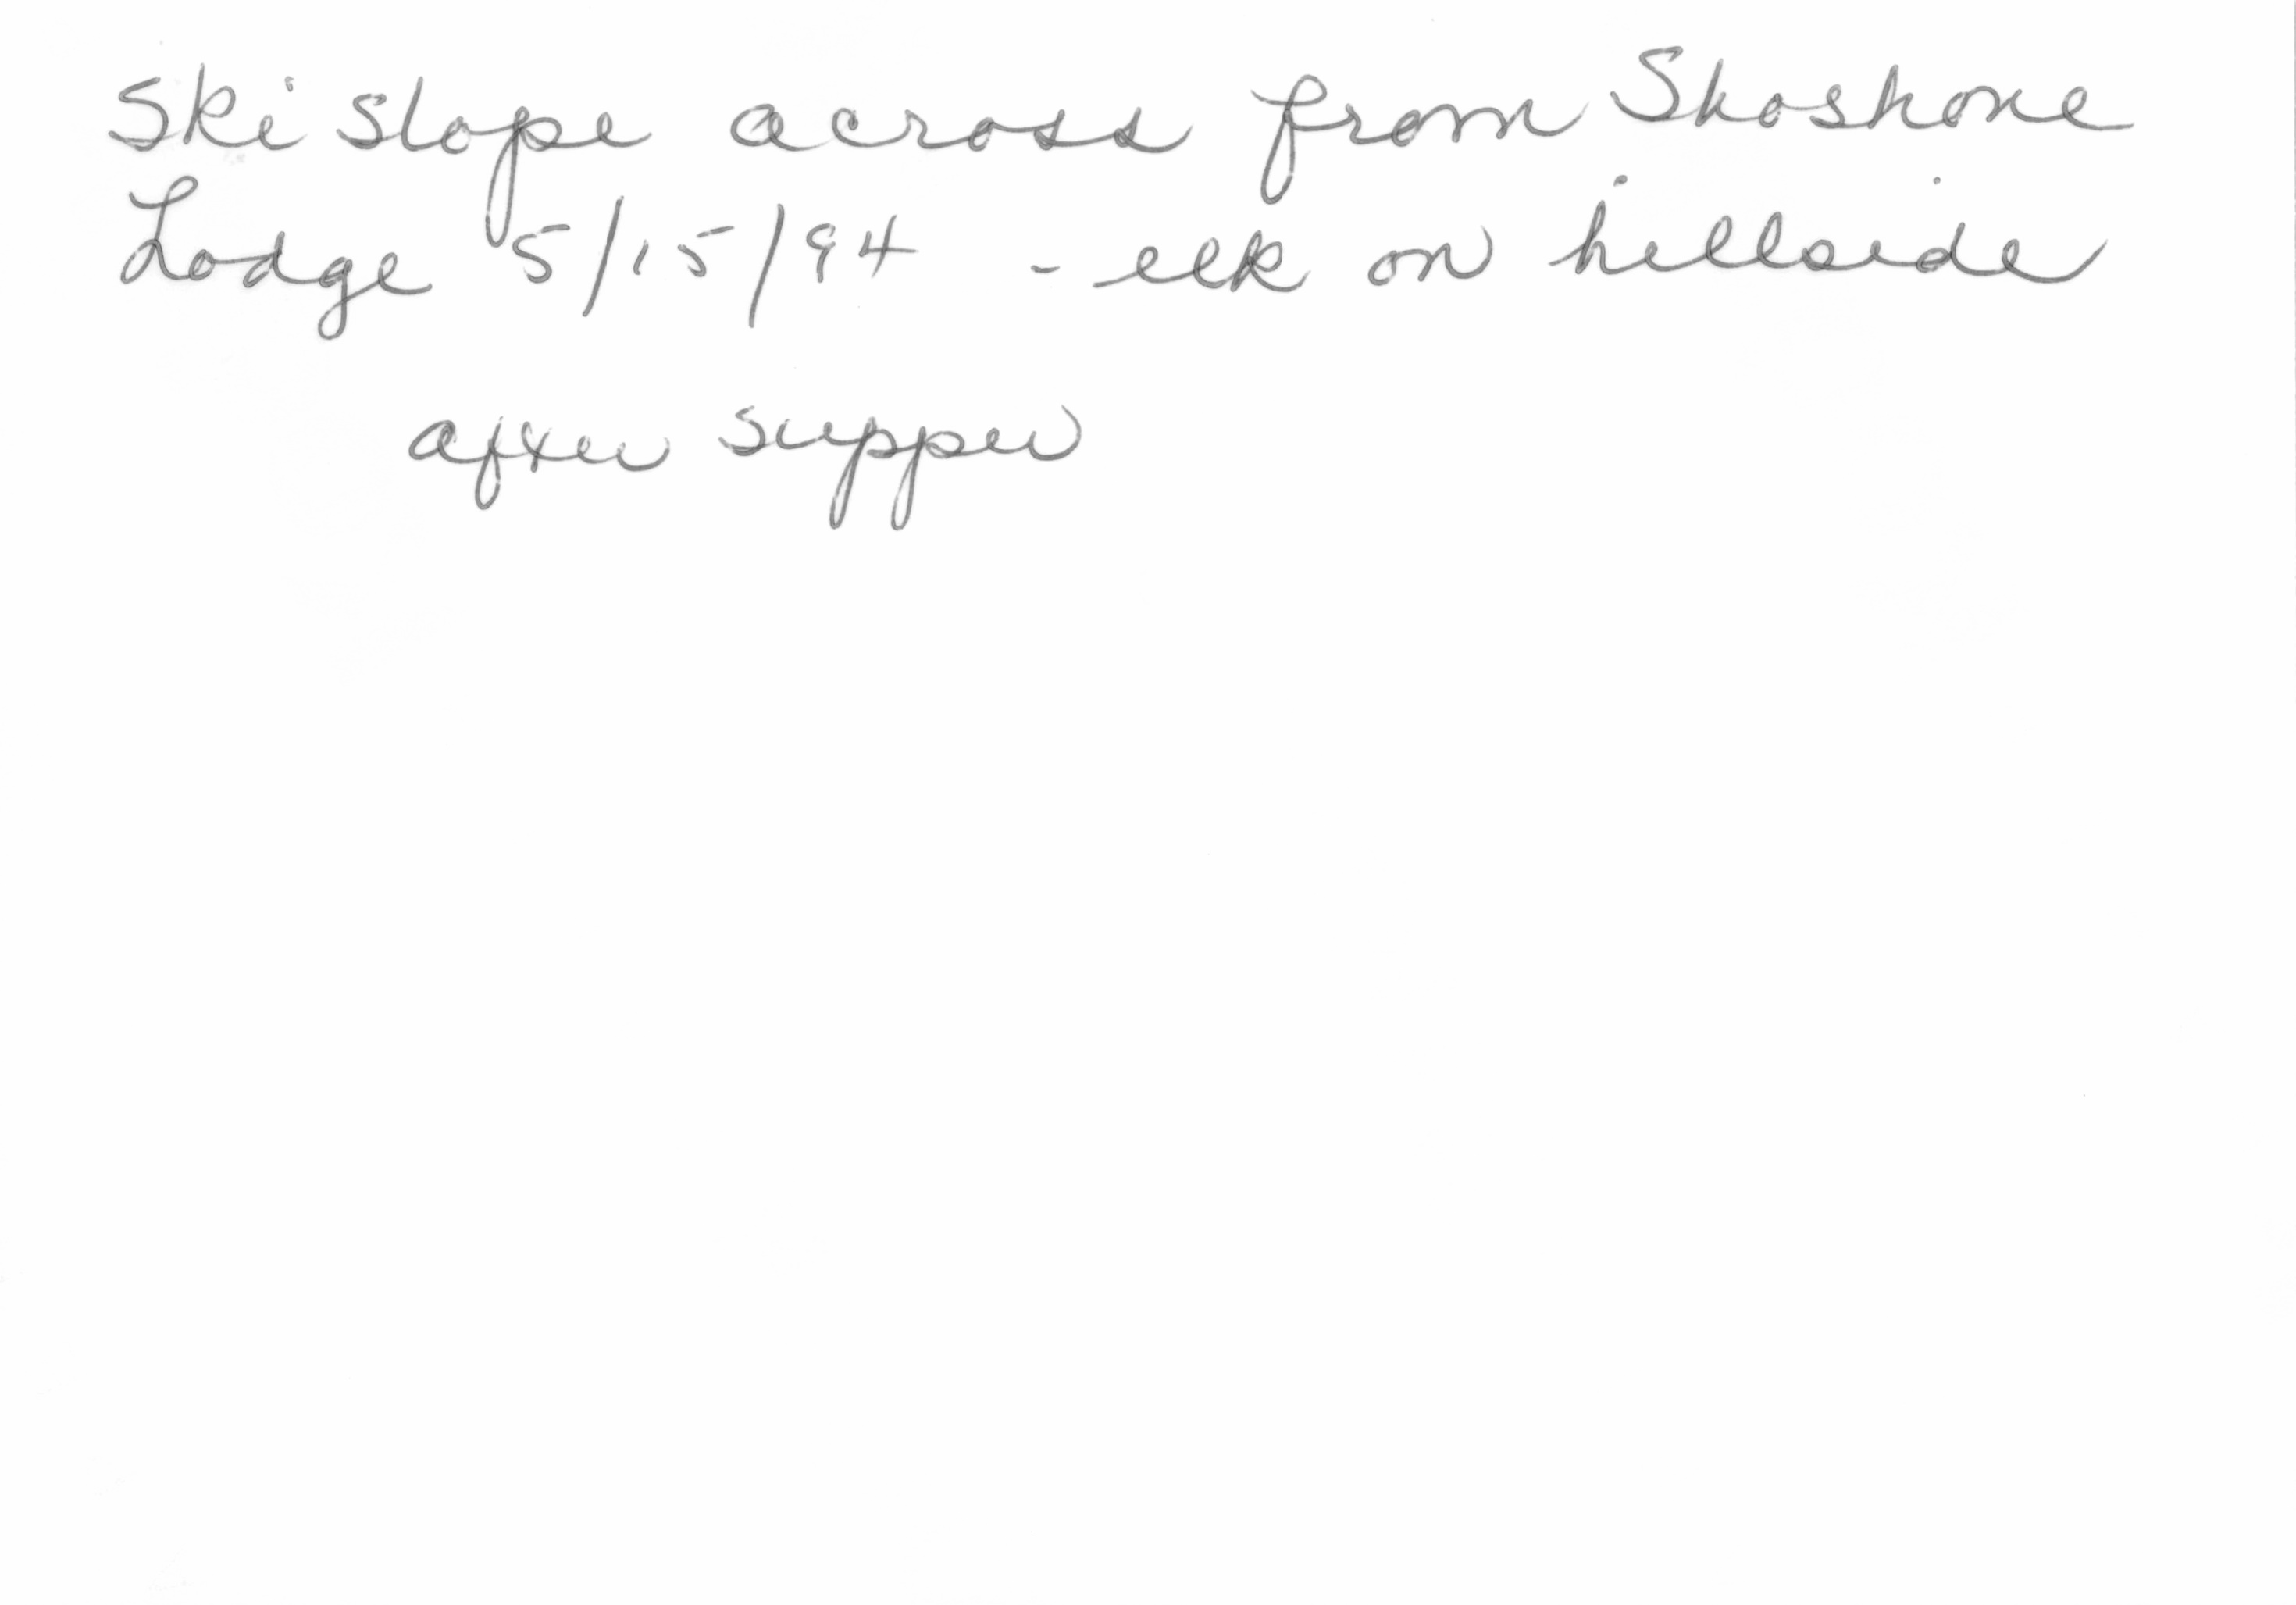 Ski slope across from Shoshone
Lodge 5/15/94 - elk on hillside
after supper